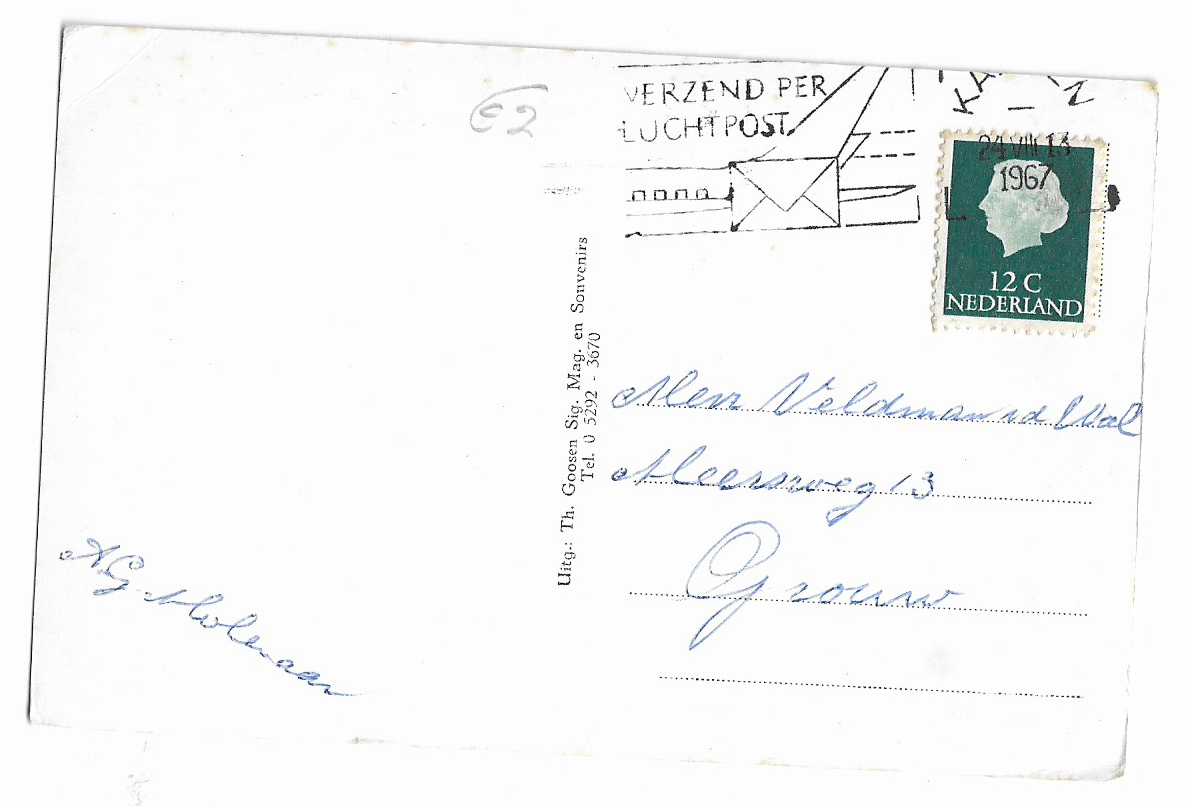 €2
VERZEND PER
LUCHTPOST
24 VIII 13
1967
12 C
NEDERLAND
Uitg.: Th. Goosen Sig. Mag. en Souvenirs
Tel. 0 5292 - 3670
Mevr Veldman vd Wal
Meersweg 13
Grouw
A.G. Molenaar